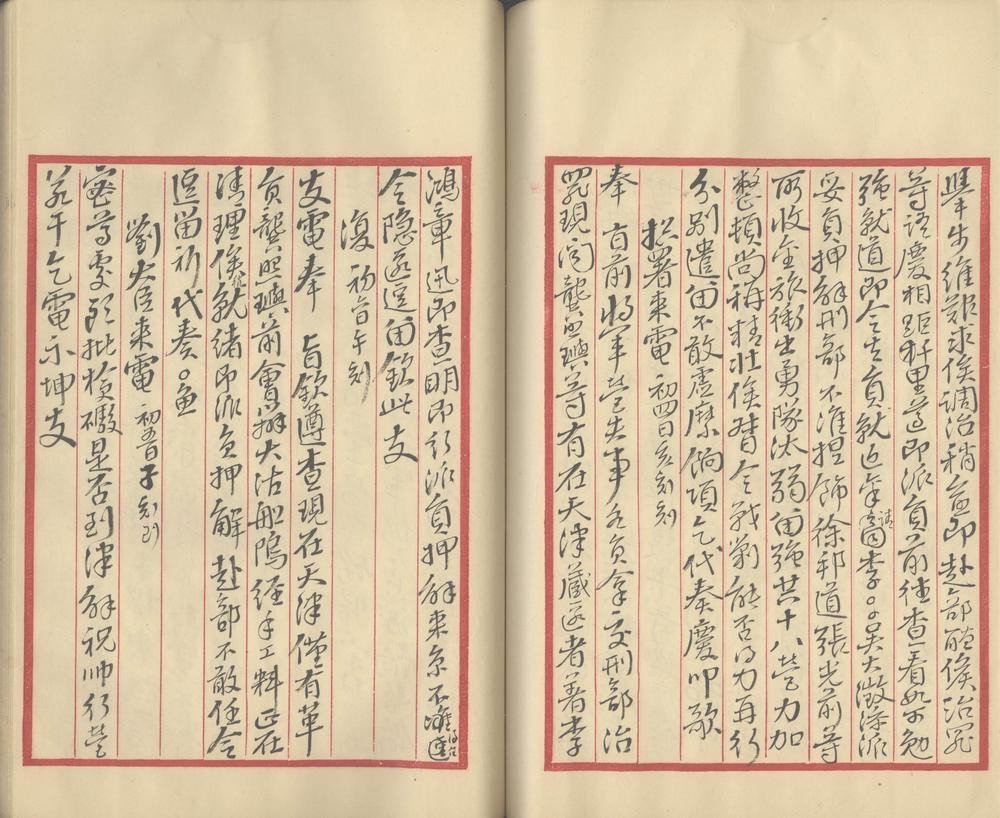 舉步維艱求俟調治稍益即赴部聽候治罪
等語慶相距程里並即派員前往查看如可勉
強就道即令委員就近守
妥員押解刑部不准捏飾徐邦道張光前等
所收金旅衛出勇隊汰弱留強共十八營力加
整頓尚稱精壯俟督令戰勦能否得力再行
分別遣留不敢虛縻餉項乞代奏慶叩歌
督署來電 初四日亥刻刻
奉 旨前將軍營已失事各員拿交刑部治
罪現聞龔照璵等有在天津藏匿者著李
鴻章迅即查明即行派員押解來京不准
令隱匿逗留欽此支
復 初五日午刻
支電奉 旨欽遵查現在天津僅有革
員龔照璵前會辦大沽船塢經手工料正在
清理俟就緒即派員押解赴部不敢任令
逗留祈代奏。魚
劉大臣來電 初五日子刻到
密蕩處所批檢礮是否到津解祝帥行營
若干乞電示坤支